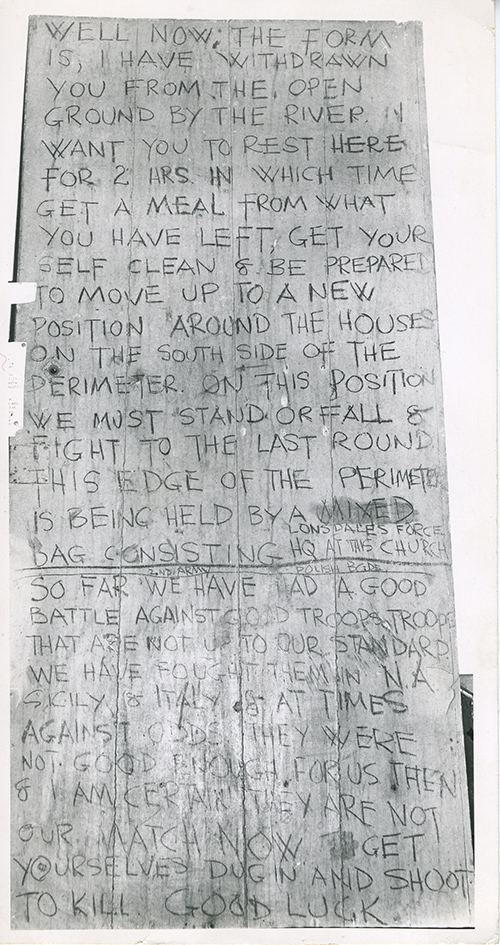 WELL NOW. THE FORM
IS, I HAVE WITHDRAWN
YOU FROM THE OPEN
GROUND BY THE RIVER. I
WANT YOU TO REST HERE
FOR 2 HRS IN WHICH TIME
GET A MEAL FROM WHAT
YOU HAVE LEFT, GET YOUR
SELF CLEAN & BE PREPARED
TO MOVE UP TO A NEW
POSITION AROUND THE HOUSES
ON THE SOUTH SIDE OF THE
PERIMETER. ON THIS POSITION
WE MUST STAND OR FALL &
FIGHT TO THE LAST ROUND
THIS EDGE OF THE PERIMETER
IS BEING HELD BY A MIXED
LONSDALES FORCE
BAG CONSISTING HQ AT THIS CHURCH
2ND ARMY POLISH BGDE
SO FAR WE HAVE HAD A GOOD
BATTLE AGAINST GOOD TROOPS, TROOPS
THAT ARE NOT UP TO OUR STANDARD
WE HAVE FOUGHT THEM IN N.A
SICILY, & ITALY, & AT TIMES
AGAINST ODDS. THEY WERE
NOT GOOD ENOUGH FOR US THEN
& I AM CERTAIN THEY ARE NOT
OUR MATCH NOW GET
YOURSELVES DUG IN AND SHOOT
TO KILL. GOOD LUCK